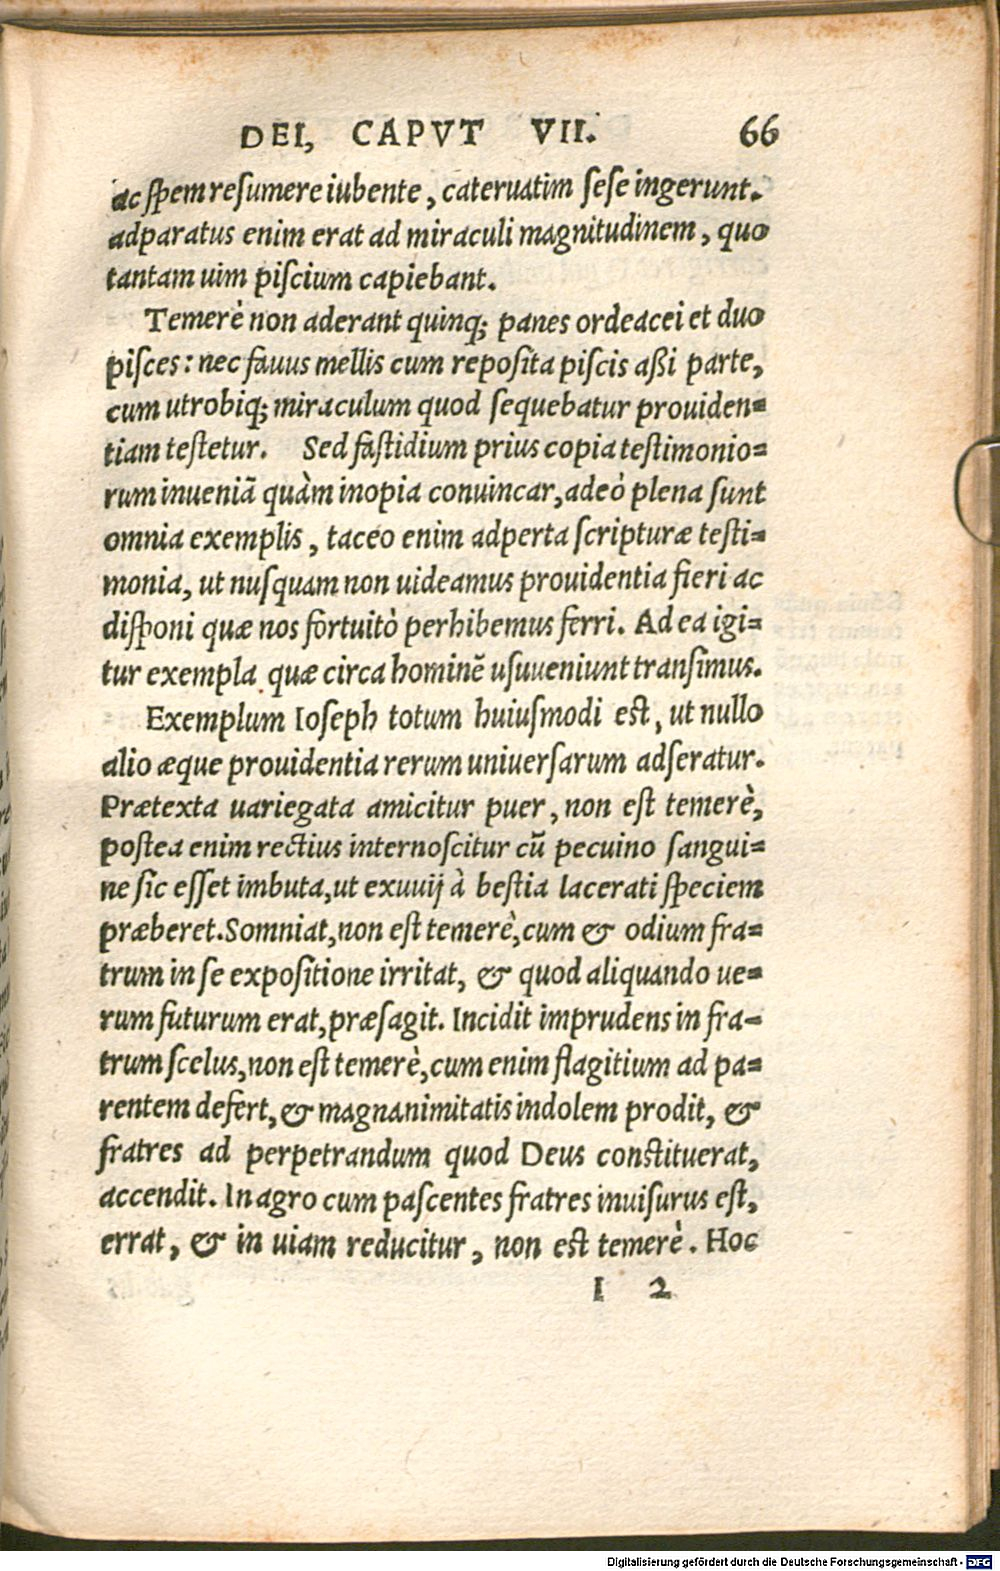 DEI, CAPVT VII. 66
ac ſpem reſumere iubente, cateruatim ſeſe ingerunt.
adparatus enim erat ad miraculi magnitudinem, quo
tantam uim piſcium capiebant.
Temerè non aderant quinq; panes ordeacei et duo
piſces: nec fauus mellis cum reposita piſcis aßi parte,
cum utrobiq; miraculum quod sequebatur prouiden=
tiam teſtetur. Sed faſtidium prius copia teſtimonio=
rum inueniã quàm inopia conuincar, adeó plena ſunt
omnia exemplis, taceo enim adperta ſcripturæ teſti=
monia, ut nuſquam non uideamus prouidentia fieri ac
diſponi quæ nos fortuitò perhibemus ferri. Ad ea igi=
tur exempla quæ circa hominẽ uſuueniunt tranſimus.
Exemplum Ioſeph totum huiuſmodi eſt, ut nullo
alio æque prouidentia rerum uniuerſarum adſeratur.
Prætexta uariegata amicitur puer, non eſt temerè,
poſtea enim rectius internoſcitur cũ pecuino ſangui=
ne ſic eſſet imbuta, ut exuuij à beſtia lacerati ſpeciem
præberet. Somniat, non eſt temerè, cum & odium fra=
trum in ſe expoſitione irritat, & quod aliquando ue=
rum futurum erat, præſagit. Incidit imprudens in fra=
trum ſcelus, non eſt temerè, cum enim flagitium ad pa=
rentem defert, & magnanimitatis indolem prodit, &
fratres ad perpetrandum quod Deus conſtituerat,
accendit. In agro cum paſcentes fratres inuiſurus eſt,
errat, & in uiam reducitur, non eſt temerè. Hoc
I 2
Digitalisierung gefördert durch die Deutsche Forschungsgemeinschaft - DFG